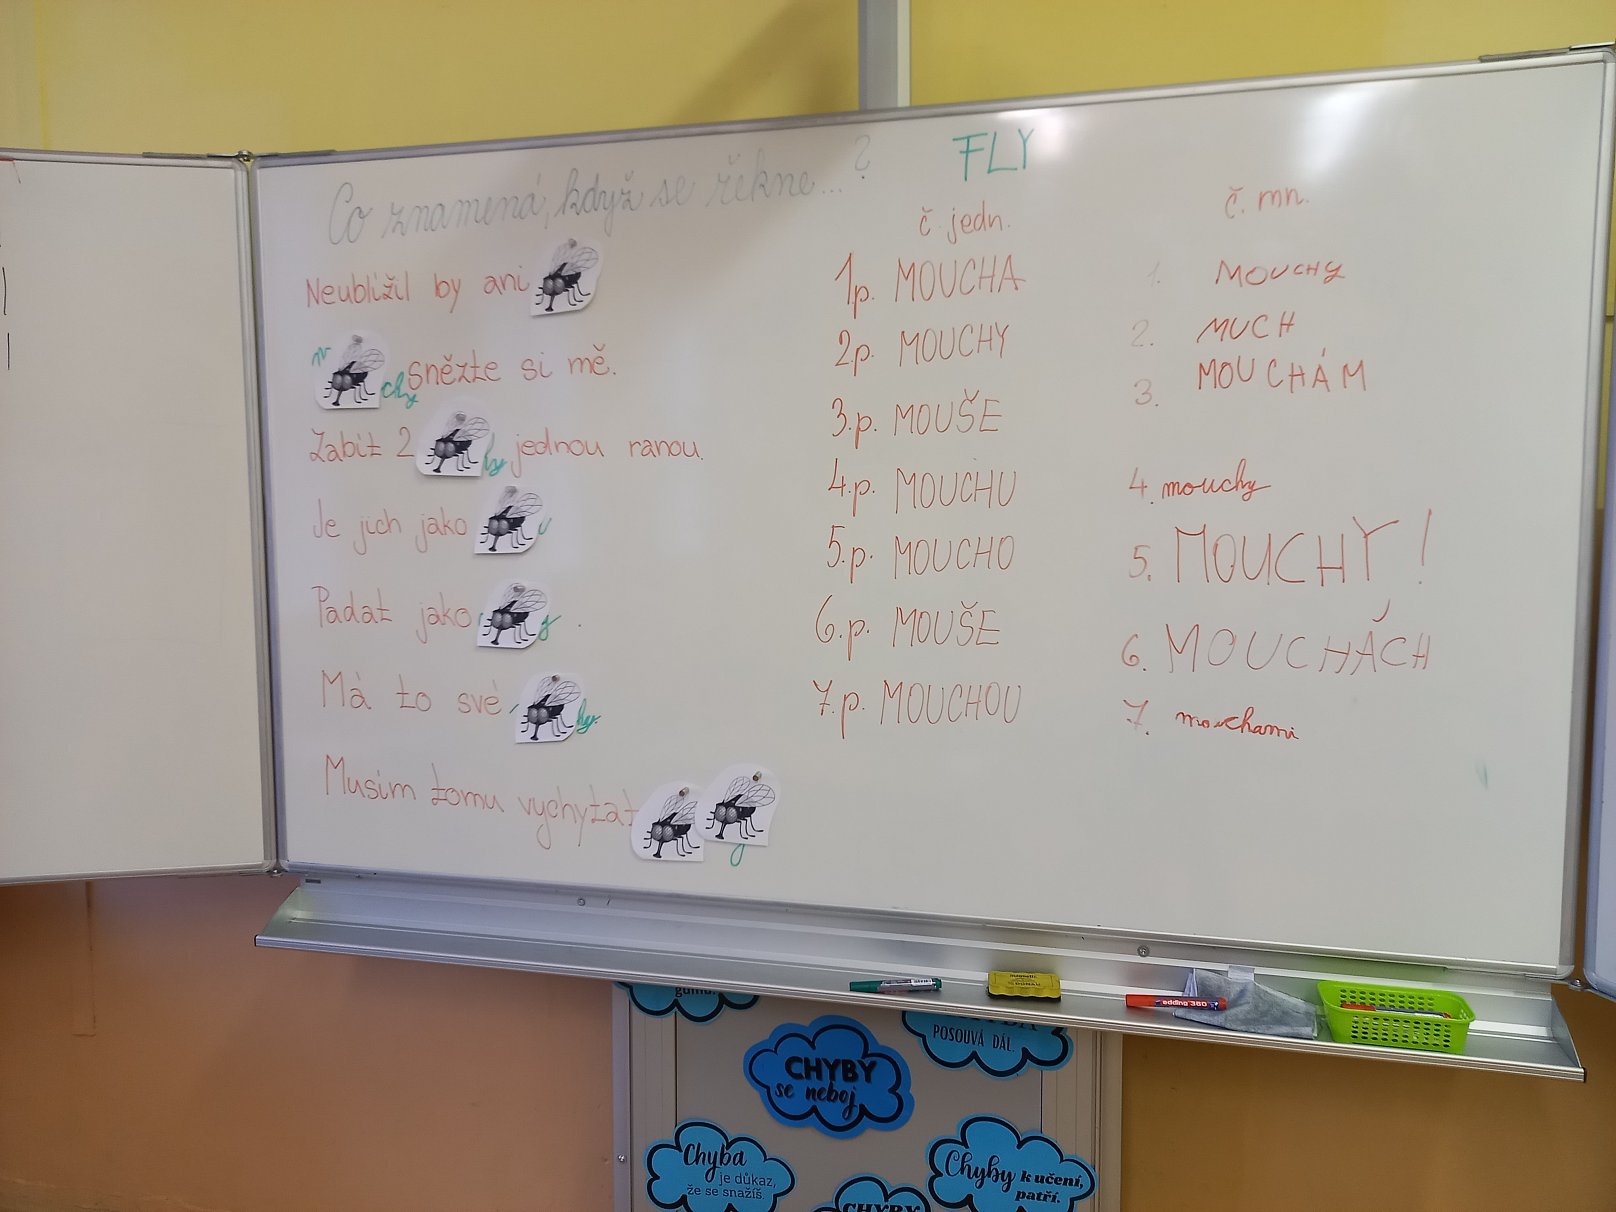 Co znamená, když se řekne...?
Neublížil by ani
m chy snězte si mě.
Zabít 2 hy jednou ranou.
Je jich jako u
Padat jako y.
Má to své hy.
Musím tomu vychytat y
FLY
č. jedn.
1.p. MOUCHA
2.p. MOUCHY
3.p. MOUŠE
4.p. MOUCHU
5.p. MOUCHO
6.p. MOUŠE
7.p. MOUCHOU
č. mn.
1. MOUCHY
2. MUCH
3. MOUCHÁM
4. mouchy
5. MOUCHY!
6. MOUCHÁCH
7. mouchami
edding 360
POSOUVÁ DÁL.
CHYBY
se neboj
Chyba
je důkaz,
že se snažíš.
Chyby k učení,
patří.
CHYBY